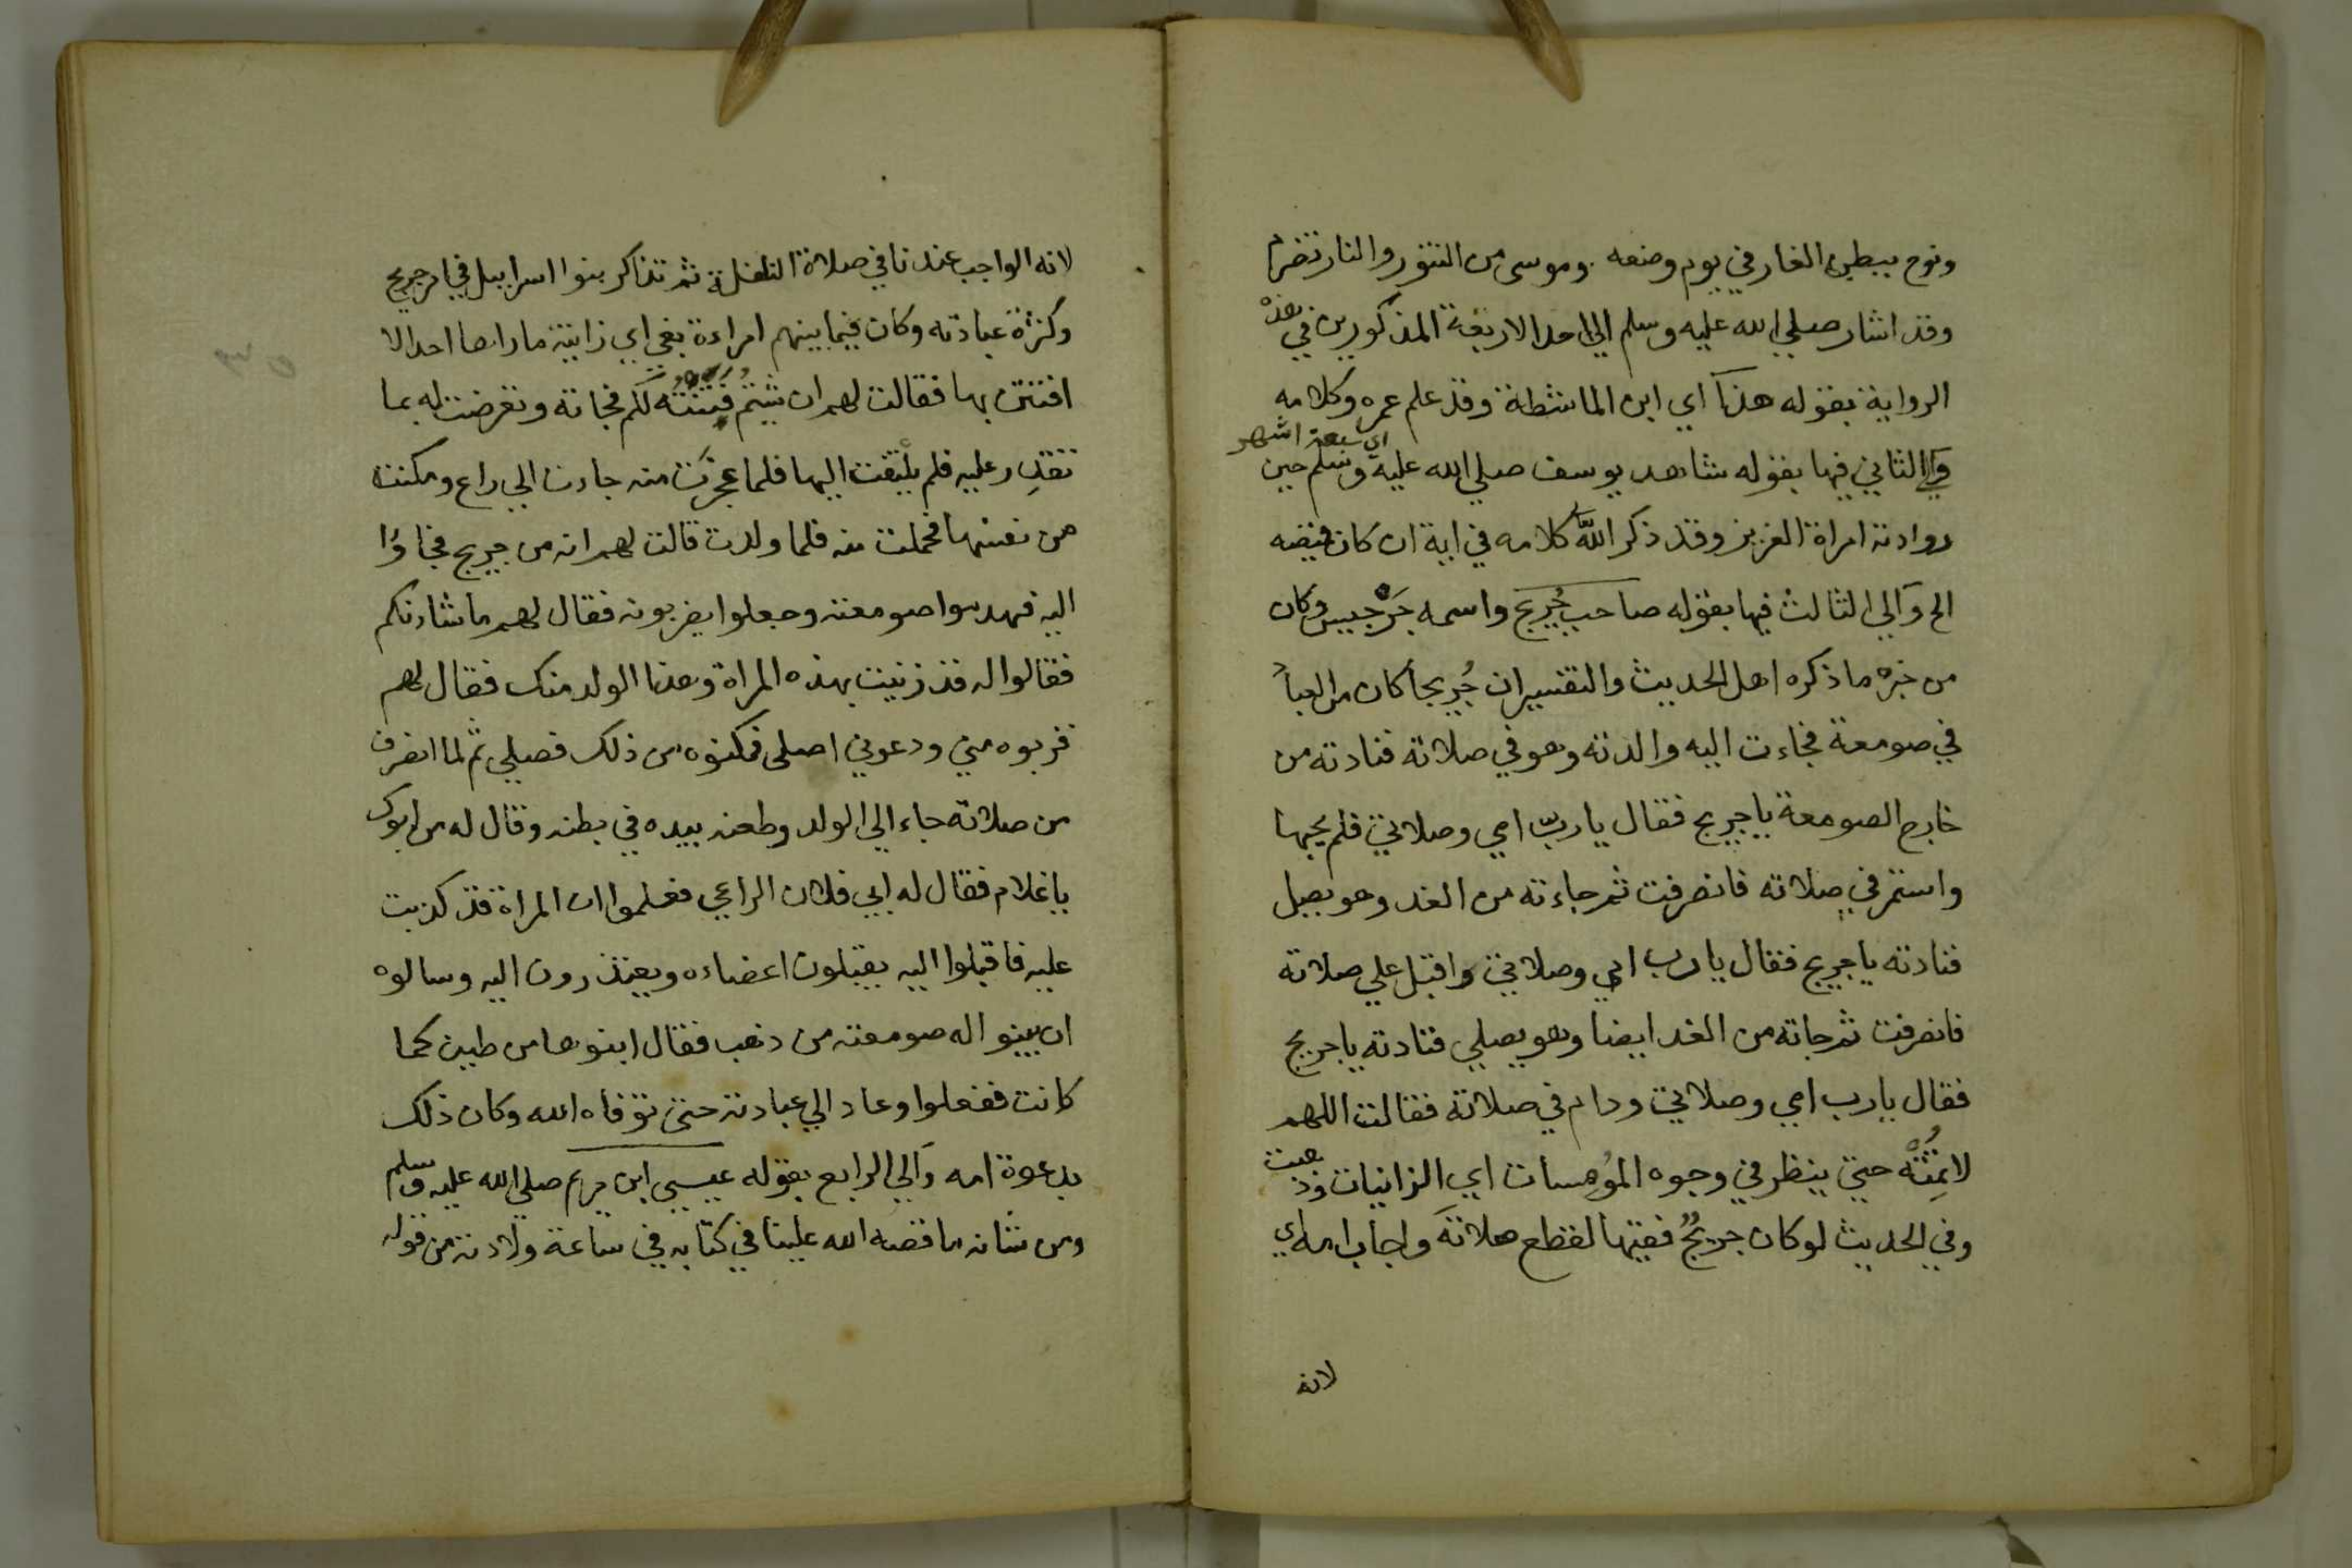 ونوح ببطن الغار في يوم وضعه . وموسى من التنور والنار تضرم
وقد اشار صلي الله عليه وسلم الي احد الاربعة المذكورين في هذه
الرواية بقوله هذا اي ابن الماشطة وقد علم عمره وكلامه
اي سبعة اشهر
والي الثاني فيها بقوله شاهد يوسف صلي الله عليه وسلم حين
روادته امراة العزيز وقد ذكر الله كلامه في اية ان كان قميصه
الخ والي الثالث فيها بقوله صاحب جُريج واسمه جَرْجيس وكان
من خبره ما ذكره اهل الحديث والتفسير ان جُريجاً كان مل لعباً
في صومعة فجاءت اليه والدته وهو في صلاته فنادته من
خارج الصومعة يا جريج فقال يا ربّ امي وصلاتي فلم يجبها
واستمر في صلاته فانصرفت ثم جاءته من الغد وهو يصل
فنادته يا جريج فقال يا رب امي وصلاتي واقبل علي صلاته
فانصرفت ثم جاته من الغد ايضا وهو يصلي فنادته يا جريج
فقال يا رب امي وصلاتي ودام في صلاته فقالت اللهم
لا تمِتْهُ حتي ينظر في وجوه المُومسات اي الزانيات وذهبت
وفي الحديث لو كان جريجٌ فقيها لقطع صلاته واجاب امه اي
لانه
لانه الواجب عندنا في صلاة النافلة ثم تذاكر بنوا اسراييل في امر جريج
وكثرة عبادته وكان فيما بينهم امراءة بغي اي زانية ما راها احد الا
افتتن بها فقالت لهم ان شيتمُ فتنتُه لكم فجاته وتعرضت له بما
تقدِر عليه فلم يلتفت اليها فلما عجزت منه جاءت الي راع ومكنت
من نفسها فحملت منه فلما ولدت قالت لهم انه من جريج فجاؤا
اليه فهدموا صومعته وجعلوا يضربونه فقال لهم ما شاءنكم
فقالوا له قد زنيت بهذه المراة وهذا الولد منك فقال لهم
قربوه مني ودعوني اصلي فمكنوه من ذلك فصلي ثم لما انصرف
من صلاته جاء الي الولد وطعنه بيده في بطنه وقال له من ابوك
يا غلام فقال له ابي فلان الراعي فعلموا ان المراة قد كذبت
عليه فاقبلوا اليه يقبلون اعضاءه ويعتذرون اليه وسالوه
ان يبنوا له صومعته من ذهب فقال ابنوها من طين كما
كانت ففعلوا وعاد الي عبادته حتي توفاه الله وكان ذلك
بدعوة امه والي الرابع بقوله عيسي ابن مريم صلي الله عليه وسلم
ومن شانه ما قصه الله علينا في كتابه في ساعة ولادته من قوله